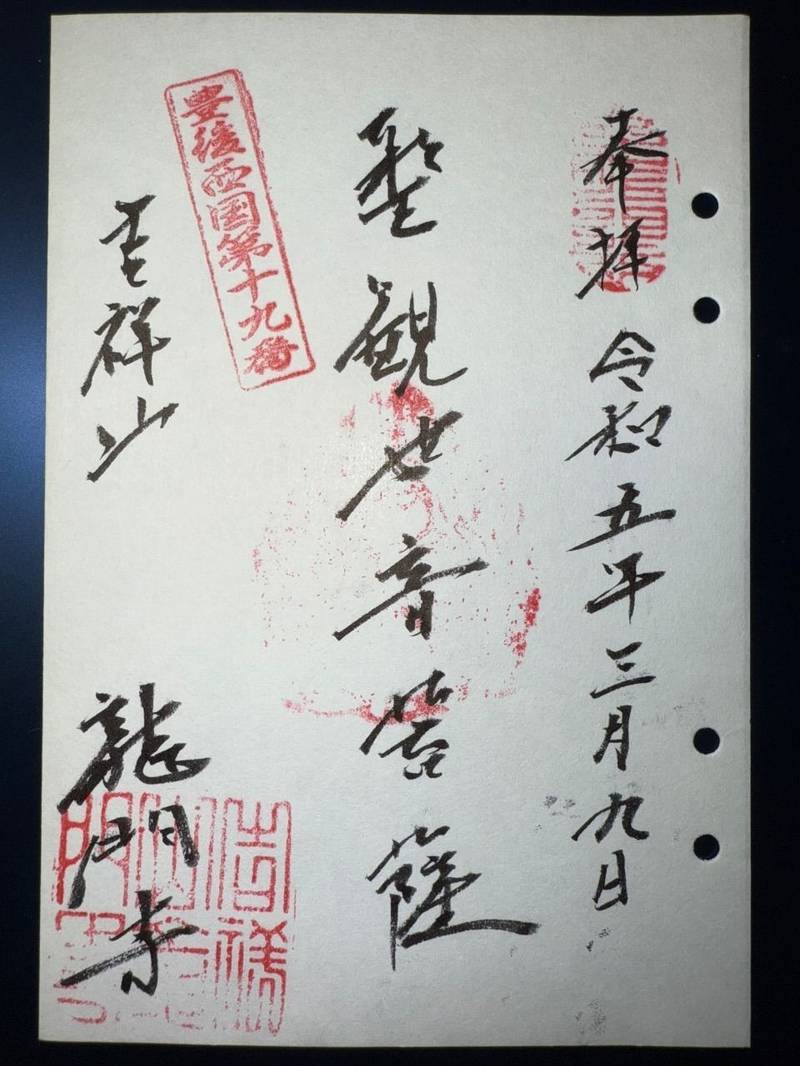 奉拝 令和五年三月九日
聖観世音菩薩
豊後西国第十九番
吉祥山 龍門寺